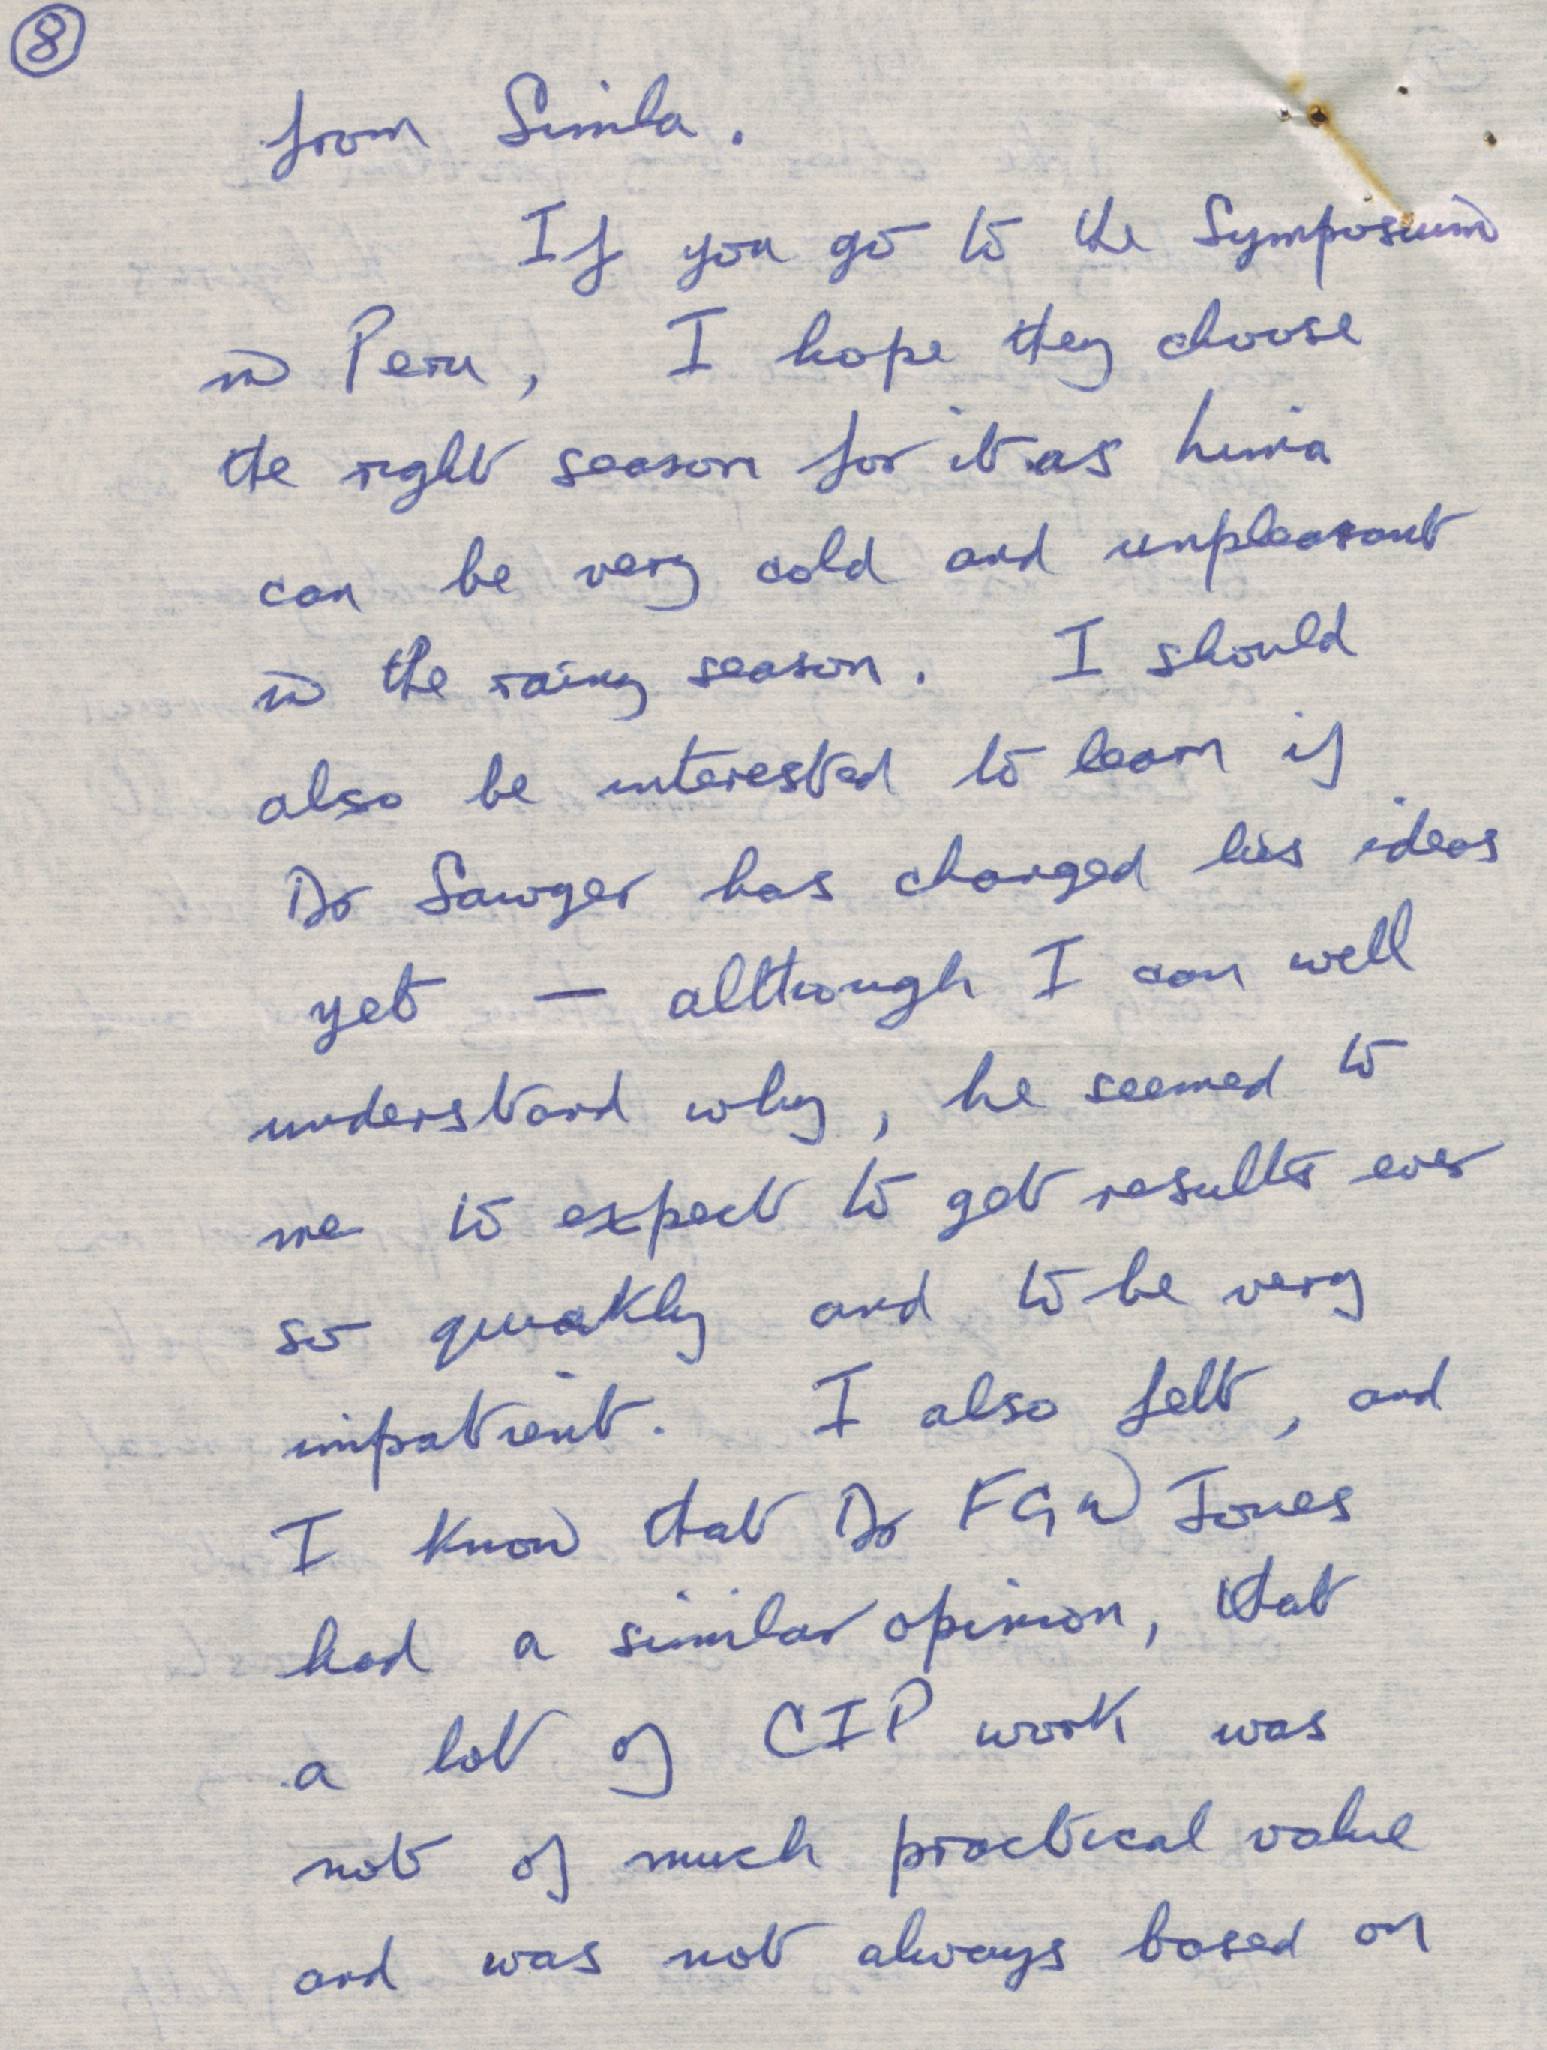 8
from Simla.
If you go to the Symposium
in Peru, I hope they choose
the right season for it as Lima
can be very cold and unpleasant
in the rainy season. I should
also be interested to learn if
Dr Sawyer has changed his ideas
yet — although I can well
understand why, he seemed to
me to expect to get results ever
so quickly and to be very
impatient. I also felt, and
I know that Dr FGW Jones
had a similar opinion, that
a lot of CIP work was
not of much practical value
and was not always based on